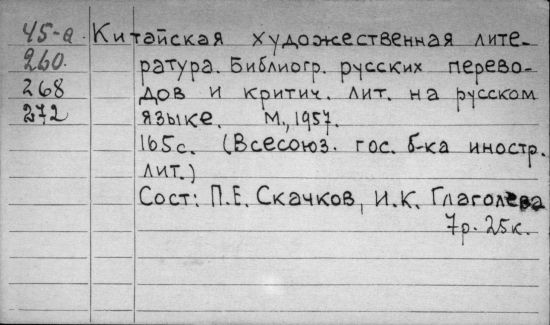 45-а Китайская художественная лите-
260 ратура. Библиогр. русских перево-
268 дов и критич. лит. на русском
272 языке. М., 1957.
165с. (Всесоюз. гос. б-ка иностр.
лит.)
Сост: П.Е. Скачков, И.К. Глаголева
7р. 25к.